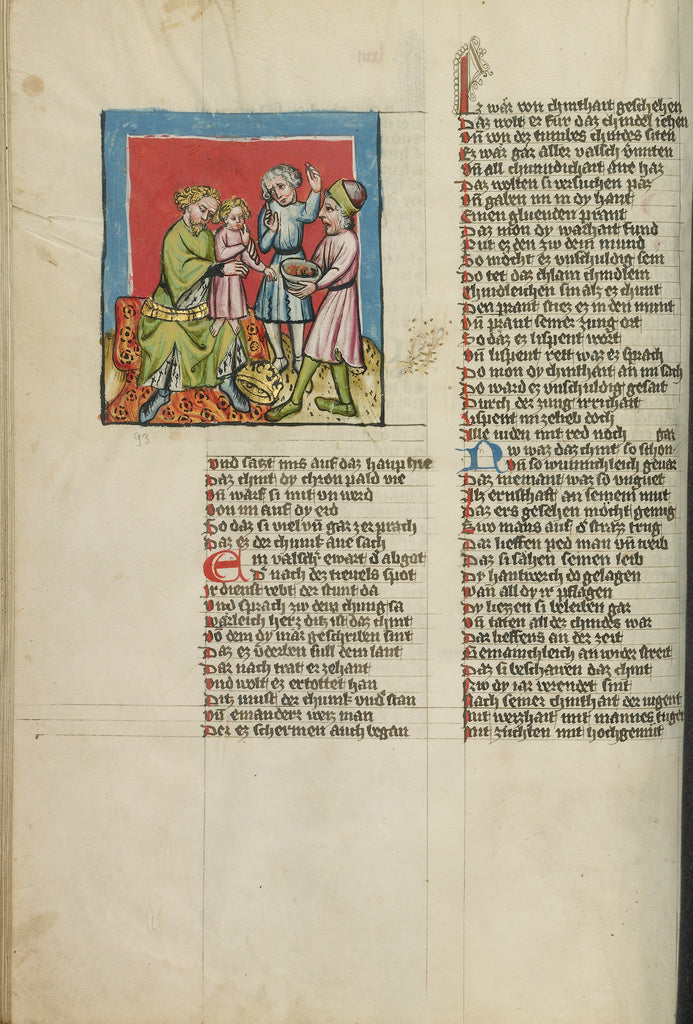 93
Vnd satzt ims auf daz haup hie
Daz chint dy chron pald vie
Vn̄ warf si mit vn werd
Von im auf dy erd
So daz si viel vn̄ gar zerprach
Daz ez der chunik ane sach
Ein valsch ewart d abgot
D nach des tieuels spot
Ir dienst lebt der stunt da
Vnd sprach zw dem chung sa
Warleich herz ditz ist daz chint
Vō dem dy mär geschriben sint
Daz ez v̄derben sull dem lant
Dar nach trat er zehant
Vnd wolt ez ertottet han
Ditz must der chunik vnd stan
Vn̄ ein anderz weiz man
Der ez schermen auch began
Ez wär von chinthait geschehen
Daz wolt er für daz chindel iehen
Vn̄ von des tumbes chindes siten
Ez wär gar aller valsch v̄miten
Vn̄ all chundichait ane haz
Daz wolten si versuchen paz
Vn̄ gaben im in dy hant
Einen gluenden prant
Daz mon dy warhait fund
Put ez den zw dem mund
So möcht ez vnschuldig sein
Do tet daz chlain chindlein
Chindleichen sin als ez chunt
Den prant stiez ez in den munt
Vn̄ prant seiner zung ort
So daz ez lispent wort
Vn̄ lispent rett waz er sprach
Do mon dy chinthait an im sach
Do ward ez vnschuldig gesait
Durch der zung irrichait
Lispent im zeleib doch
Alle iuden mit red noch gar
Nv waz daz chint so schon
Vn̄ so wunnichleich geuar
Daz niemant waz so vnguet
Als ernsthaft an seinem mut
Daz ers gesehen möcht genug
Swo mans auf d strazz trug
Dar lieffen ped man vn̄ weib
Daz si sähen seinen leib
Dy hantwerch do gelagen
Wan all dy ir pflagen
Dy liezzen si beleiben gar
Vn̄ taten all des chindes war
Dar lieffens an der zeit
Gemainchleich an wider streit
Daz si beschawen daz chint
Zw dy iar verendet sint
Nach seiner chinthait der iugent
Mit weizhait mit mannes tugent
Mit züchten mit hochgemut